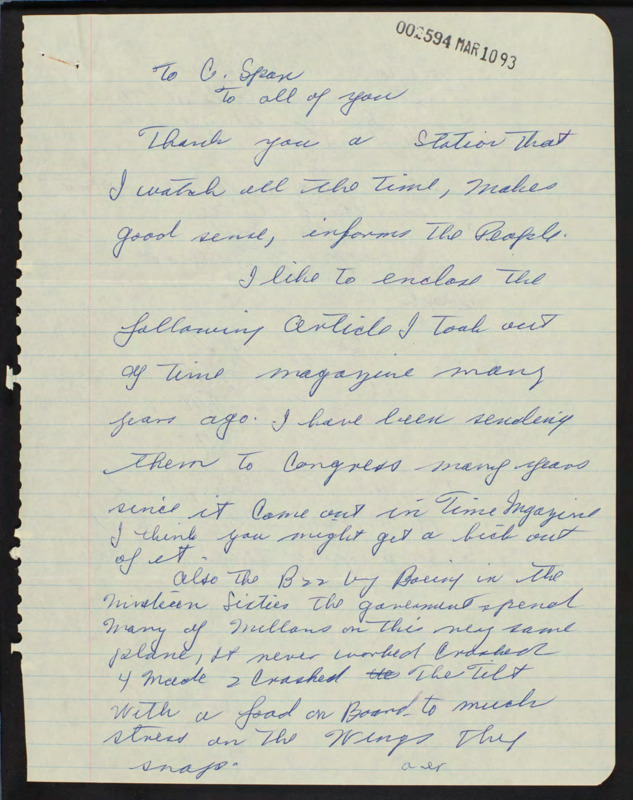 002594 MAR 10 93
To C. Span
To all of you
Thank you a Station that
I watch all the time, makes
good sense, informs the People.
I like to enclose the
following article I took out
of Time magazine many
years ago. I have been sending
them to Congress many years
since it come out in Time Mgazine
I think you might get a kick out
of it.
Also the B22 by Boeing in the
Nineteen Sixties the goverment spend
many of Millons on this very same
plane, it never worked Crashed
4 Made 2 Crashed the The Tilt
With a load on Board to much
stress on the Wings they
snap.
over